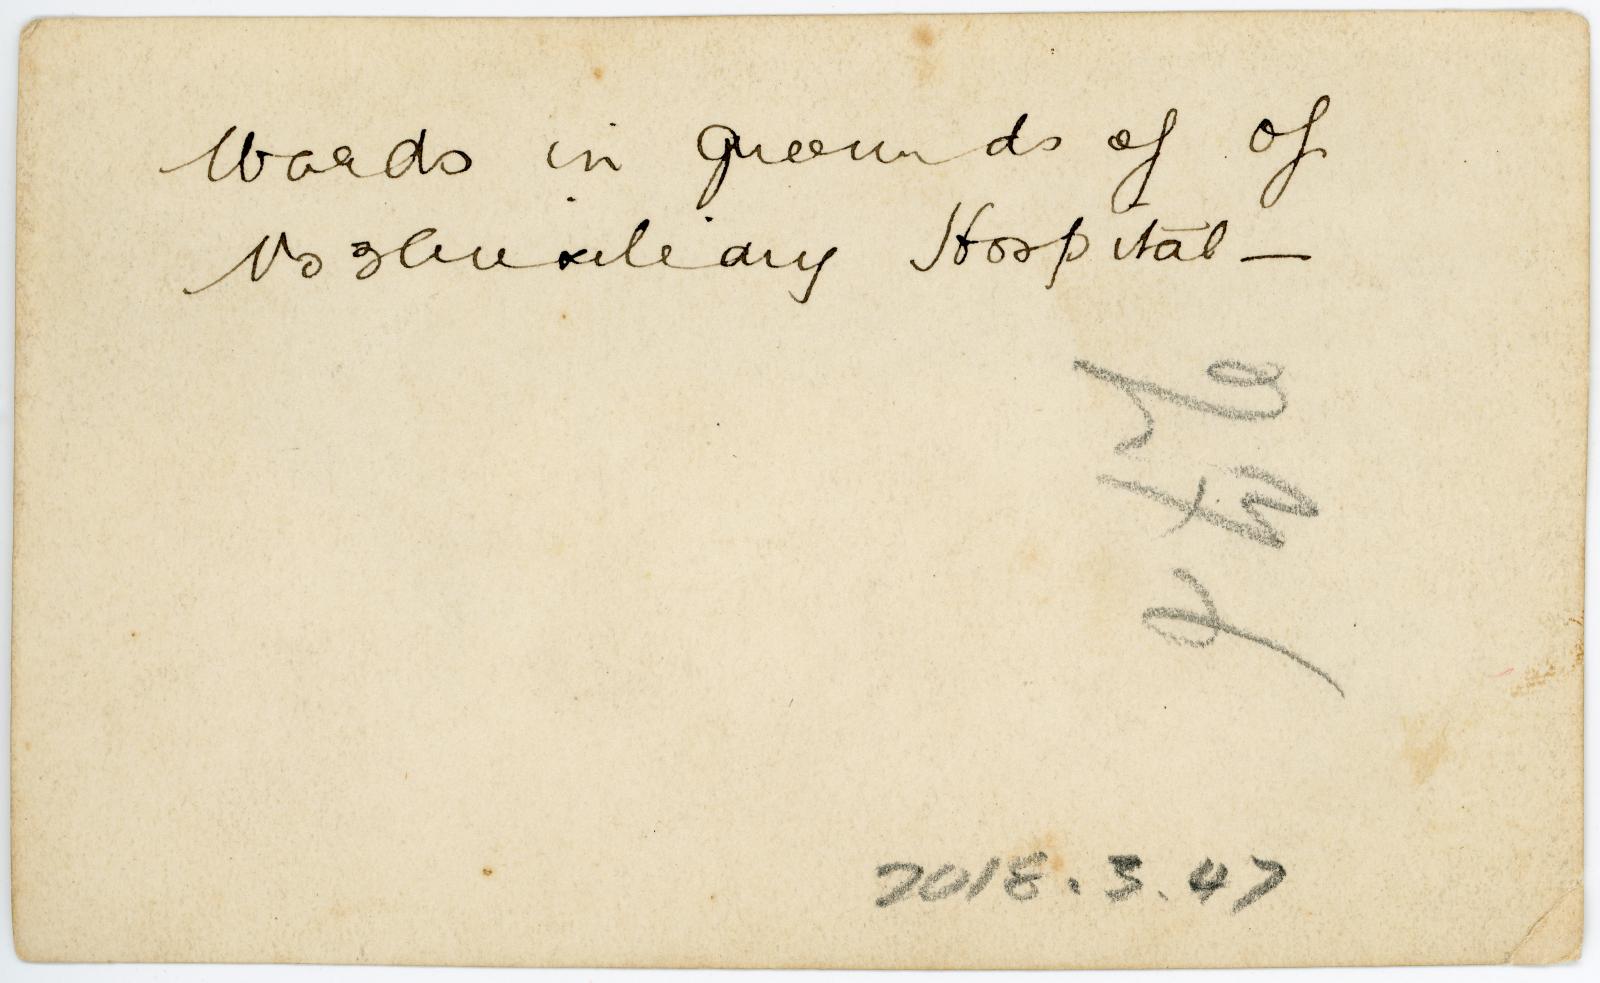 Wards in grounds of of
No 3 Auxiliary Hospital —
2018.3.47